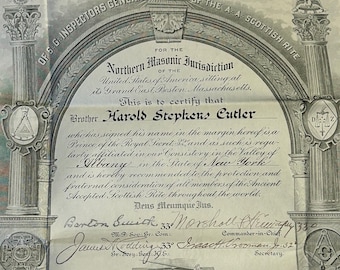 OF S.G. INSPECTORS GENERAL OF THE A.A. SCOTTISH RITE
FOR THE
Northern Masonic Jurisdiction
OF THE
United States of America, sitting at
its Grand East, Boston, Massachusetts.
This is to certify that
Brother Harold Stephens Cutler
who has signed his name in the margin hereof is a
Prince of the Royal Secret 32° and as such is regu-
larly affiliated in our Consistory in the Valley of
Albany in the State of New York
and is hereby recommended to the protection and
fraternal consideration of all members of the Ancient
Accepted Scottish Rite throughout the world.
Deus Meumque Jus.
Barton Smith 33° Marshall
M.P. Sov. Gr. Com. Commander-in-Chief
James H. Codding 33°
Gr. Sec. Gen. H.E. Secretary